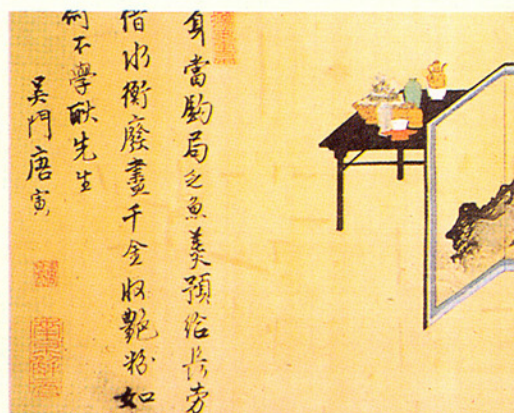 身當鈎局乏魚羹預給長勞
借水衡廢盡千金收艷粉如
何不學耿先生
吳門唐寅